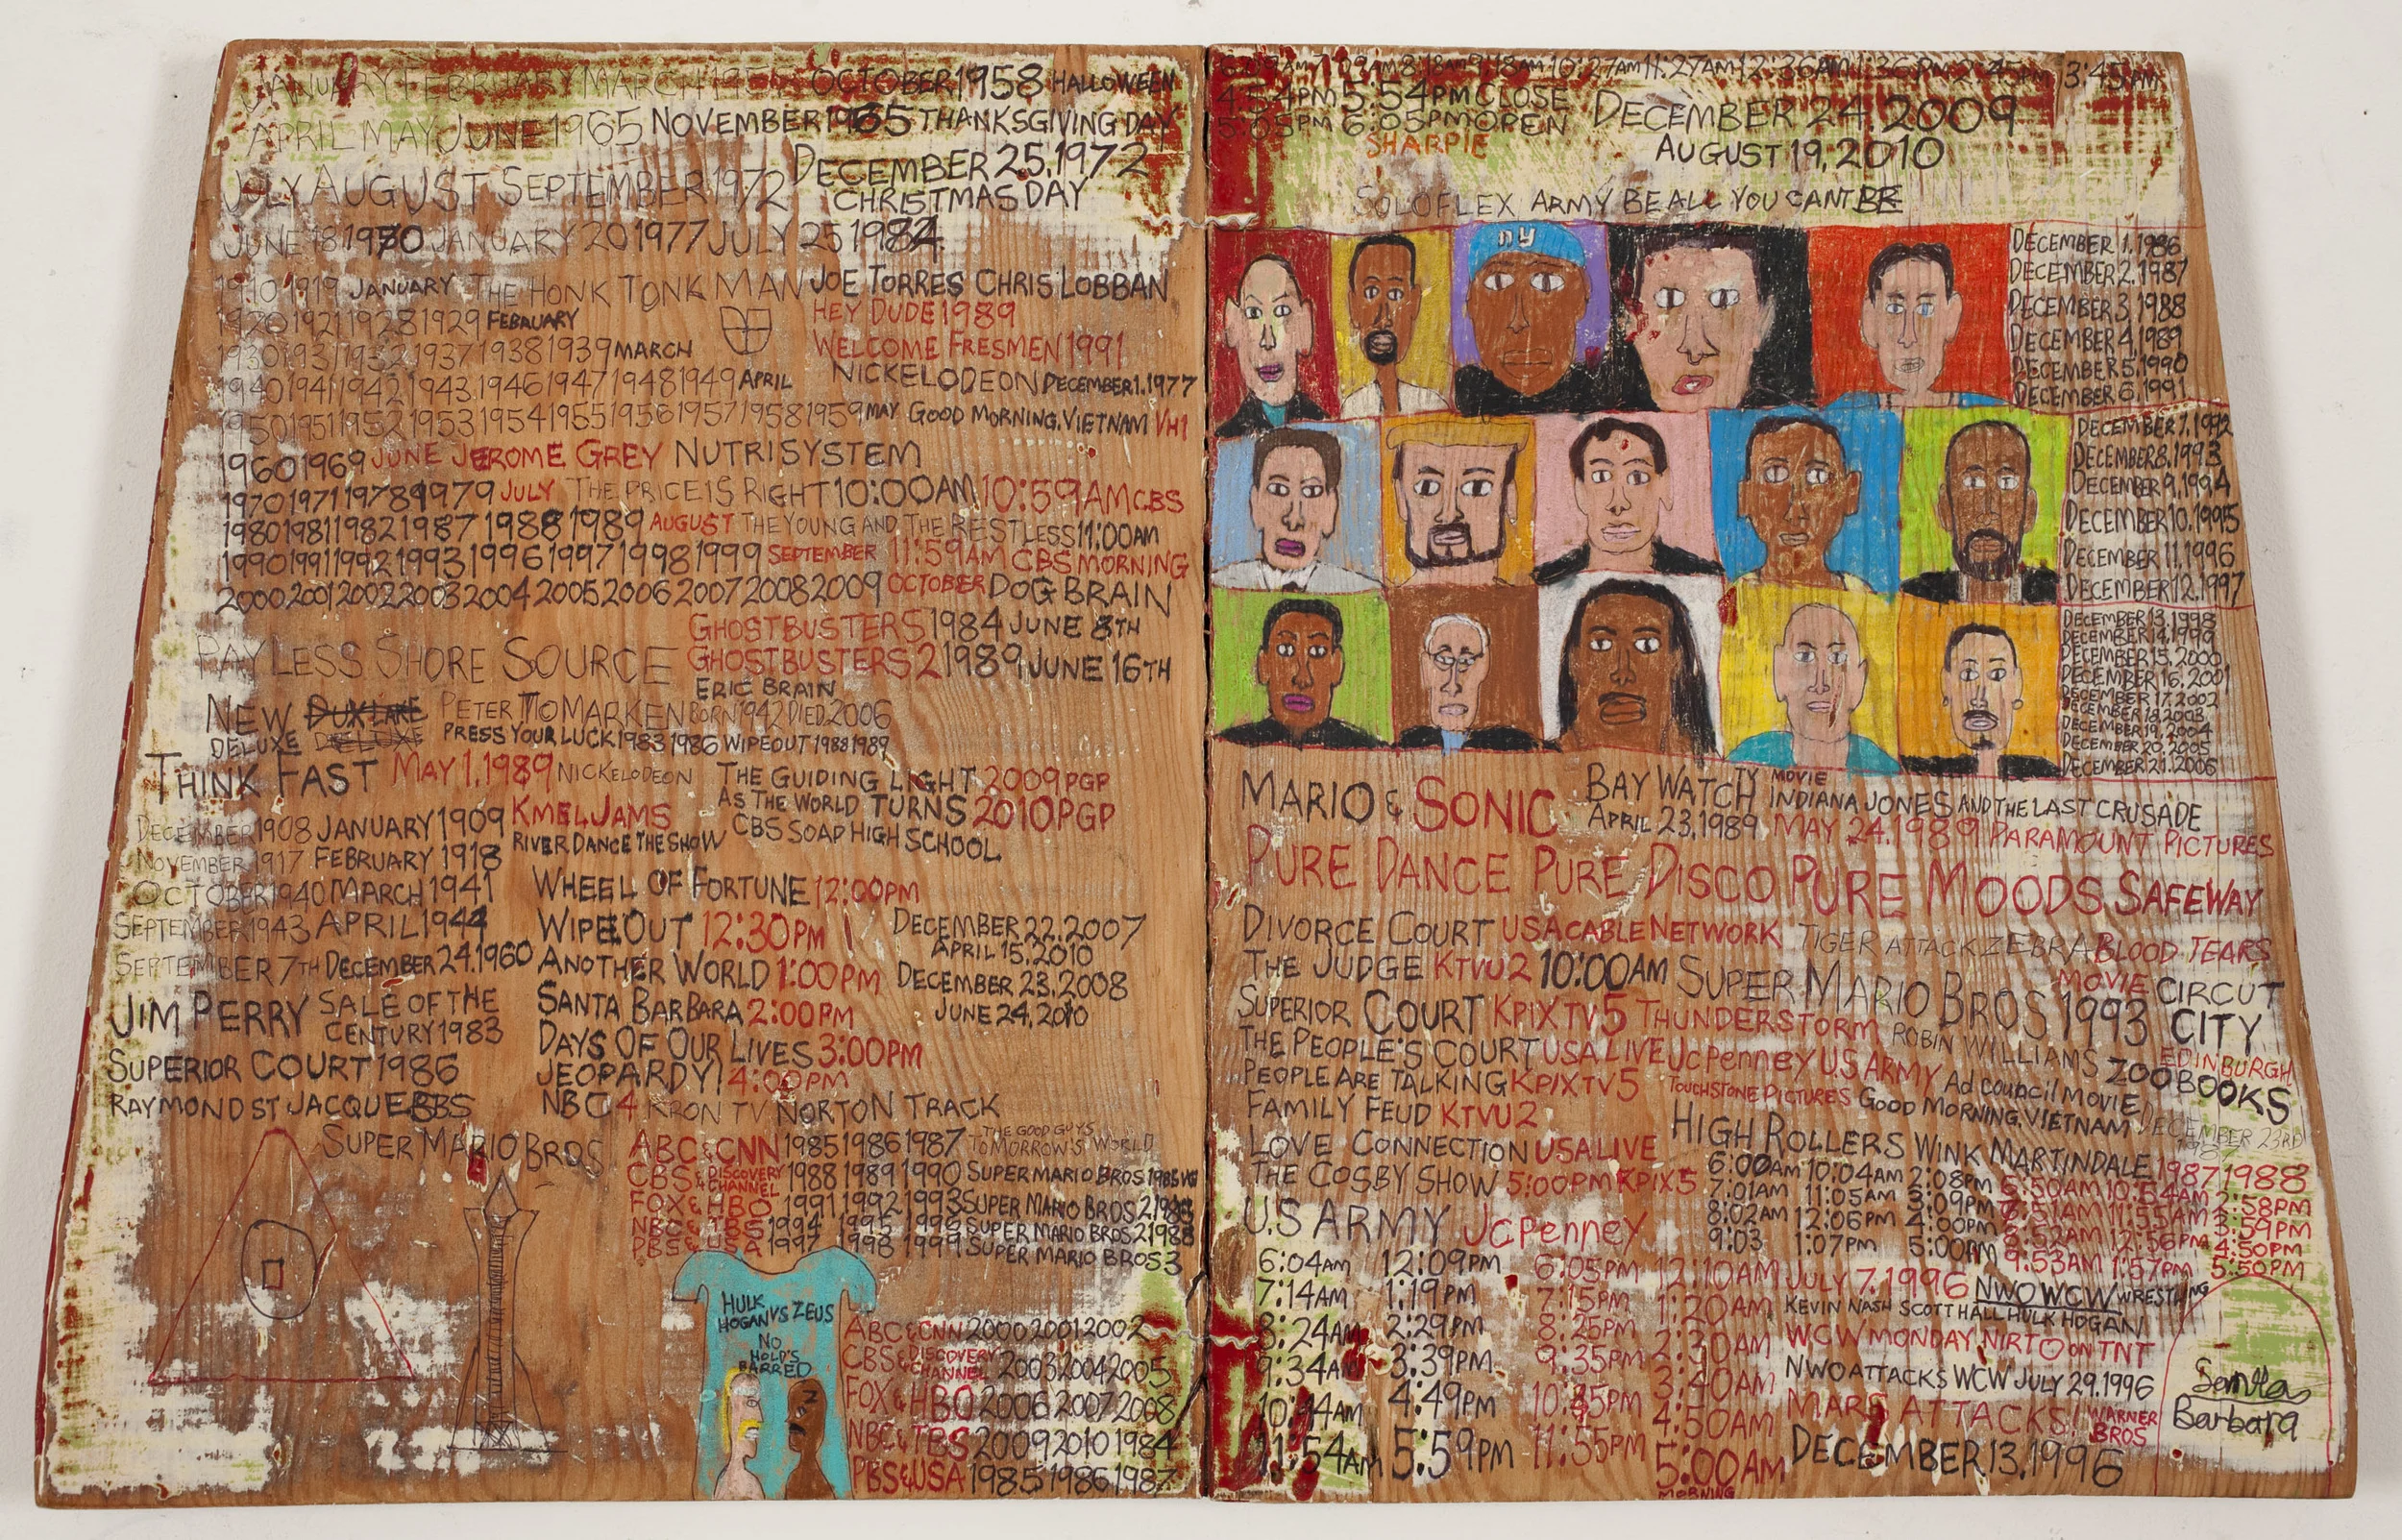 JANUARY FEBRUARY MARCH 195 OCTOBER 1958 HALLOWEEN
APRIL MAY JUNE 1965 NOVEMBER 1965 THANKSGIVING DAY
JULY AUGUST SEPTEMBER 1972 DECEMBER 25.1972
CHRISTMAS DAY
JUNE 18 1970 JANUARY 20 1977 JULY 25 1984
1910 1919 JANUARY THE HONK TONK MAN JOE TORRES CHRIS LOBBAN
1920 1921 1928 1929 FEBAUARY HEY DUDE 1989
1930 1931 1932 1937 1938 1939 MARCH WELCOME FRESMEN 1991
1940 1941 1942 1943 1946 1947 1948 1949 APRIL NICKELODEON DECEMBER 1.1977
1950 1951 1952 1953 1954 1955 1956 1957 1958 1959 MAY GOOD MORNING, VIETNAM VH1
1960 1969 JUNE JEROME GREY NUTRISYSTEM
1970 1971 1978 1979 JULY THE PRICE IS RIGHT 10:00AM 10:59AM CBS
1980 1981 1982 1987 1988 1989 AUGUST THE YOUNG AND THE RESTLESS 11:00AM
1990 1991 1992 1993 1996 1997 1998 1999 SEPTEMBER 11:59AM CBS MORNING
2000 2001 2002 2003 2004 2005 2006 2007 2008 2009 OCTOBER DOG BRAIN
GHOSTBUSTERS 1984 JUNE 8TH
PAY LESS SHORE SOURCE GHOSTBUSTERS 2 1989 JUNE 16TH
ERIC BRAIN
NEW DUXLAKE PETER TOMARKEN BORN 1942 DIED 2006
DELUXE DELUXE PRESS YOUR LUCK 1983 1986 WIPEOUT 1988 1989
THINK FAST MAY 1.1989 NICKELODEON THE GUIDING LIGHT 2009 PGP
AS THE WORLD TURNS 2010 PGP
DECEMBER 1908 JANUARY 1909 KMEL JAMS CBS SOAP HIGH SCHOOL
NOVEMBER 1917 FEBRUARY 1918 RIVER DANCE THE SHOW
OCTOBER 1940 MARCH 1941 WHEEL OF FORTUNE 12:00PM
SEPTEMBER 1943 APRIL 1944 WIPEOUT 12:30PM DECEMBER 22.2007
APRIL 15.2010
SEPTEMBER 7TH DECEMBER 24.1960 ANOTHER WORLD 1:00PM DECEMBER 23.2008
JIM PERRY SALE OF THE CENTURY 1983 SANTA BARBARA 2:00PM JUNE 24.2010
DAYS OF OUR LIVES 3:00PM
SUPERIOR COURT 1986 JEOPARDY! 4:00PM
RAYMOND ST JACQUEBBS NBC 4 KRON TV NORTON TRACK
SUPER MARIO BROS ABC & CNN 1985 1986 1987 THE GOOD GUYS TOMORROW'S WORLD
CBS & DISCOVERY CHANNEL 1988 1989 1990 SUPER MARIO BROS 1985 VG
FOX & HBO 1991 1992 1993 SUPER MARIO BROS 2 1986
NBC & TBS 1994 1995 1996 SUPER MARIO BROS 2 1988
PBS & USA 1997 1998 1999 SUPER MARIO BROS 3
HULK HOGAN VS ZEUS
NO HOLD'S BARRED
ABC & CNN 2000 2001 2002
CBS & DISCOVERY CHANNEL 2003 2004 2005
FOX & HBO 2006 2007 2008
NBC & TBS 2009 2010 1984
PBS & USA 1985 1986 1987
6:09AM 7:09AM 8:18AM 9:18AM 10:27AM 11:27AM 12:36AM 1:36PM 2:45PM 3:45PM
4:54PM 5:54PM CLOSE DECEMBER 24.2009
5:05PM 6:05PM OPEN
SHARPIE AUGUST 19,2010
SOLOFLEX ARMY BE ALL YOU CANT BE
ny
DECEMBER 1.1986
DECEMBER 2.1987
DECEMBER 3.1988
DECEMBER 4.1989
DECEMBER 5.1990
DECEMBER 6.1991
DECEMBER 7.1992
DECEMBER 8.1993
DECEMBER 9.1994
DECEMBER 10.1995
DECEMBER 11.1996
DECEMBER 12.1997
DECEMBER 13.1998
DECEMBER 14.1999
DECEMBER 15.2000
DECEMBER 16.2001
DECEMBER 17.2002
DECEMBER 18.2003
DECEMBER 19.2004
DECEMBER 20.2005
DECEMBER 21.2006
MARIO & SONIC BAY WATCH TV MOVIE INDIANA JONES AND THE LAST CRUSADE
APRIL 23.1989 MAY 24.1989 PARAMOUNT PICTURES
PURE DANCE PURE DISCO PURE MOODS SAFEWAY
DIVORCE COURT USA CABLE NETWORK TIGER ATTACK ZEBRA BLOOD TEARS
THE JUDGE KTVU 2 10:00AM SUPER MARIO BROS 1993 MOVIE CIRCUT CITY
SUPERIOR COURT KPIX TV 5 THUNDERSTORM ROBIN WILLIAMS EDINBURGH
THE PEOPLE'S COURT USA LIVE JCPENNEY U.S ARMY AD COUNCIL MOVIE ZOO BOOKS
PEOPLE ARE TALKING KPIX TV 5 TOUCHSTONE PICTURES GOOD MORNING, VIETNAM DECEMBER 23RD 1987
FAMILY FEUD KTVU 2 HIGH ROLLERS WINK MARTINDALE 1987 1988
LOVE CONNECTION USA LIVE 6:00AM 10:04AM 2:08PM 5:50AM 10:54AM 2:58PM
THE COSBY SHOW 5:00PM KPIX 5 7:01AM 11:05AM 3:09PM 7:51AM 11:55AM 3:59PM
8:02AM 12:06PM 4:00PM 8:52AM 12:56PM 4:50PM
U.S ARMY JCPenney 9:03 1:07PM 5:00PM 9:53AM 1:57PM 5:50PM
6:04AM 12:09PM 6:05PM 12:10AM JULY 7.1996 NWO WCW WRESTLING
7:14AM 1:19PM 7:15PM 1:20AM KEVIN NASH SCOTT HALL HULK HOGAN
8:24AM 2:29PM 8:25PM 2:30AM WCW MONDAY NIRTO ON TNT
9:34AM 3:39PM 9:35PM 3:40AM NWO ATTACKS WCW JULY 29.1996
10:44AM 4:49PM 10:35PM 4:50AM MARS ATTACKS! WARNER BROS
11:54AM 5:59PM 11:55PM 5:00AM MORNING DECEMBER 13.1996
Santa
Barbara